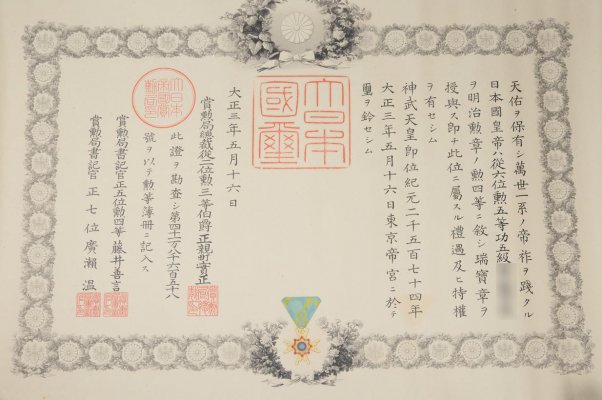 天佑ヲ保有シ萬世一系ノ帝祚ヲ踐タル
日本國皇帝ハ從六位勲五等功五級
ヲ明治勲章ノ勲四等ニ敍シ瑞寶章ヲ
授與ス即チ此位ニ屬スル禮遇及ヒ特權
ヲ有セシム
神武天皇即位紀元二千五百七十四年
大正三年五月十六日東京帝宮ニ於テ
璽ヲ鈐セシム
大日本
國璽
大正三年五月十六日
賞勲局總裁從二位勲三等伯爵正親町實正
此證ヲ勘査シ第四十一万八千六百五十八
號ヲ以テ勲等簿冊ニ記入ス
賞勲局書記官正五位勲四等藤井善言
賞勲局書記官正七位廣瀨溫